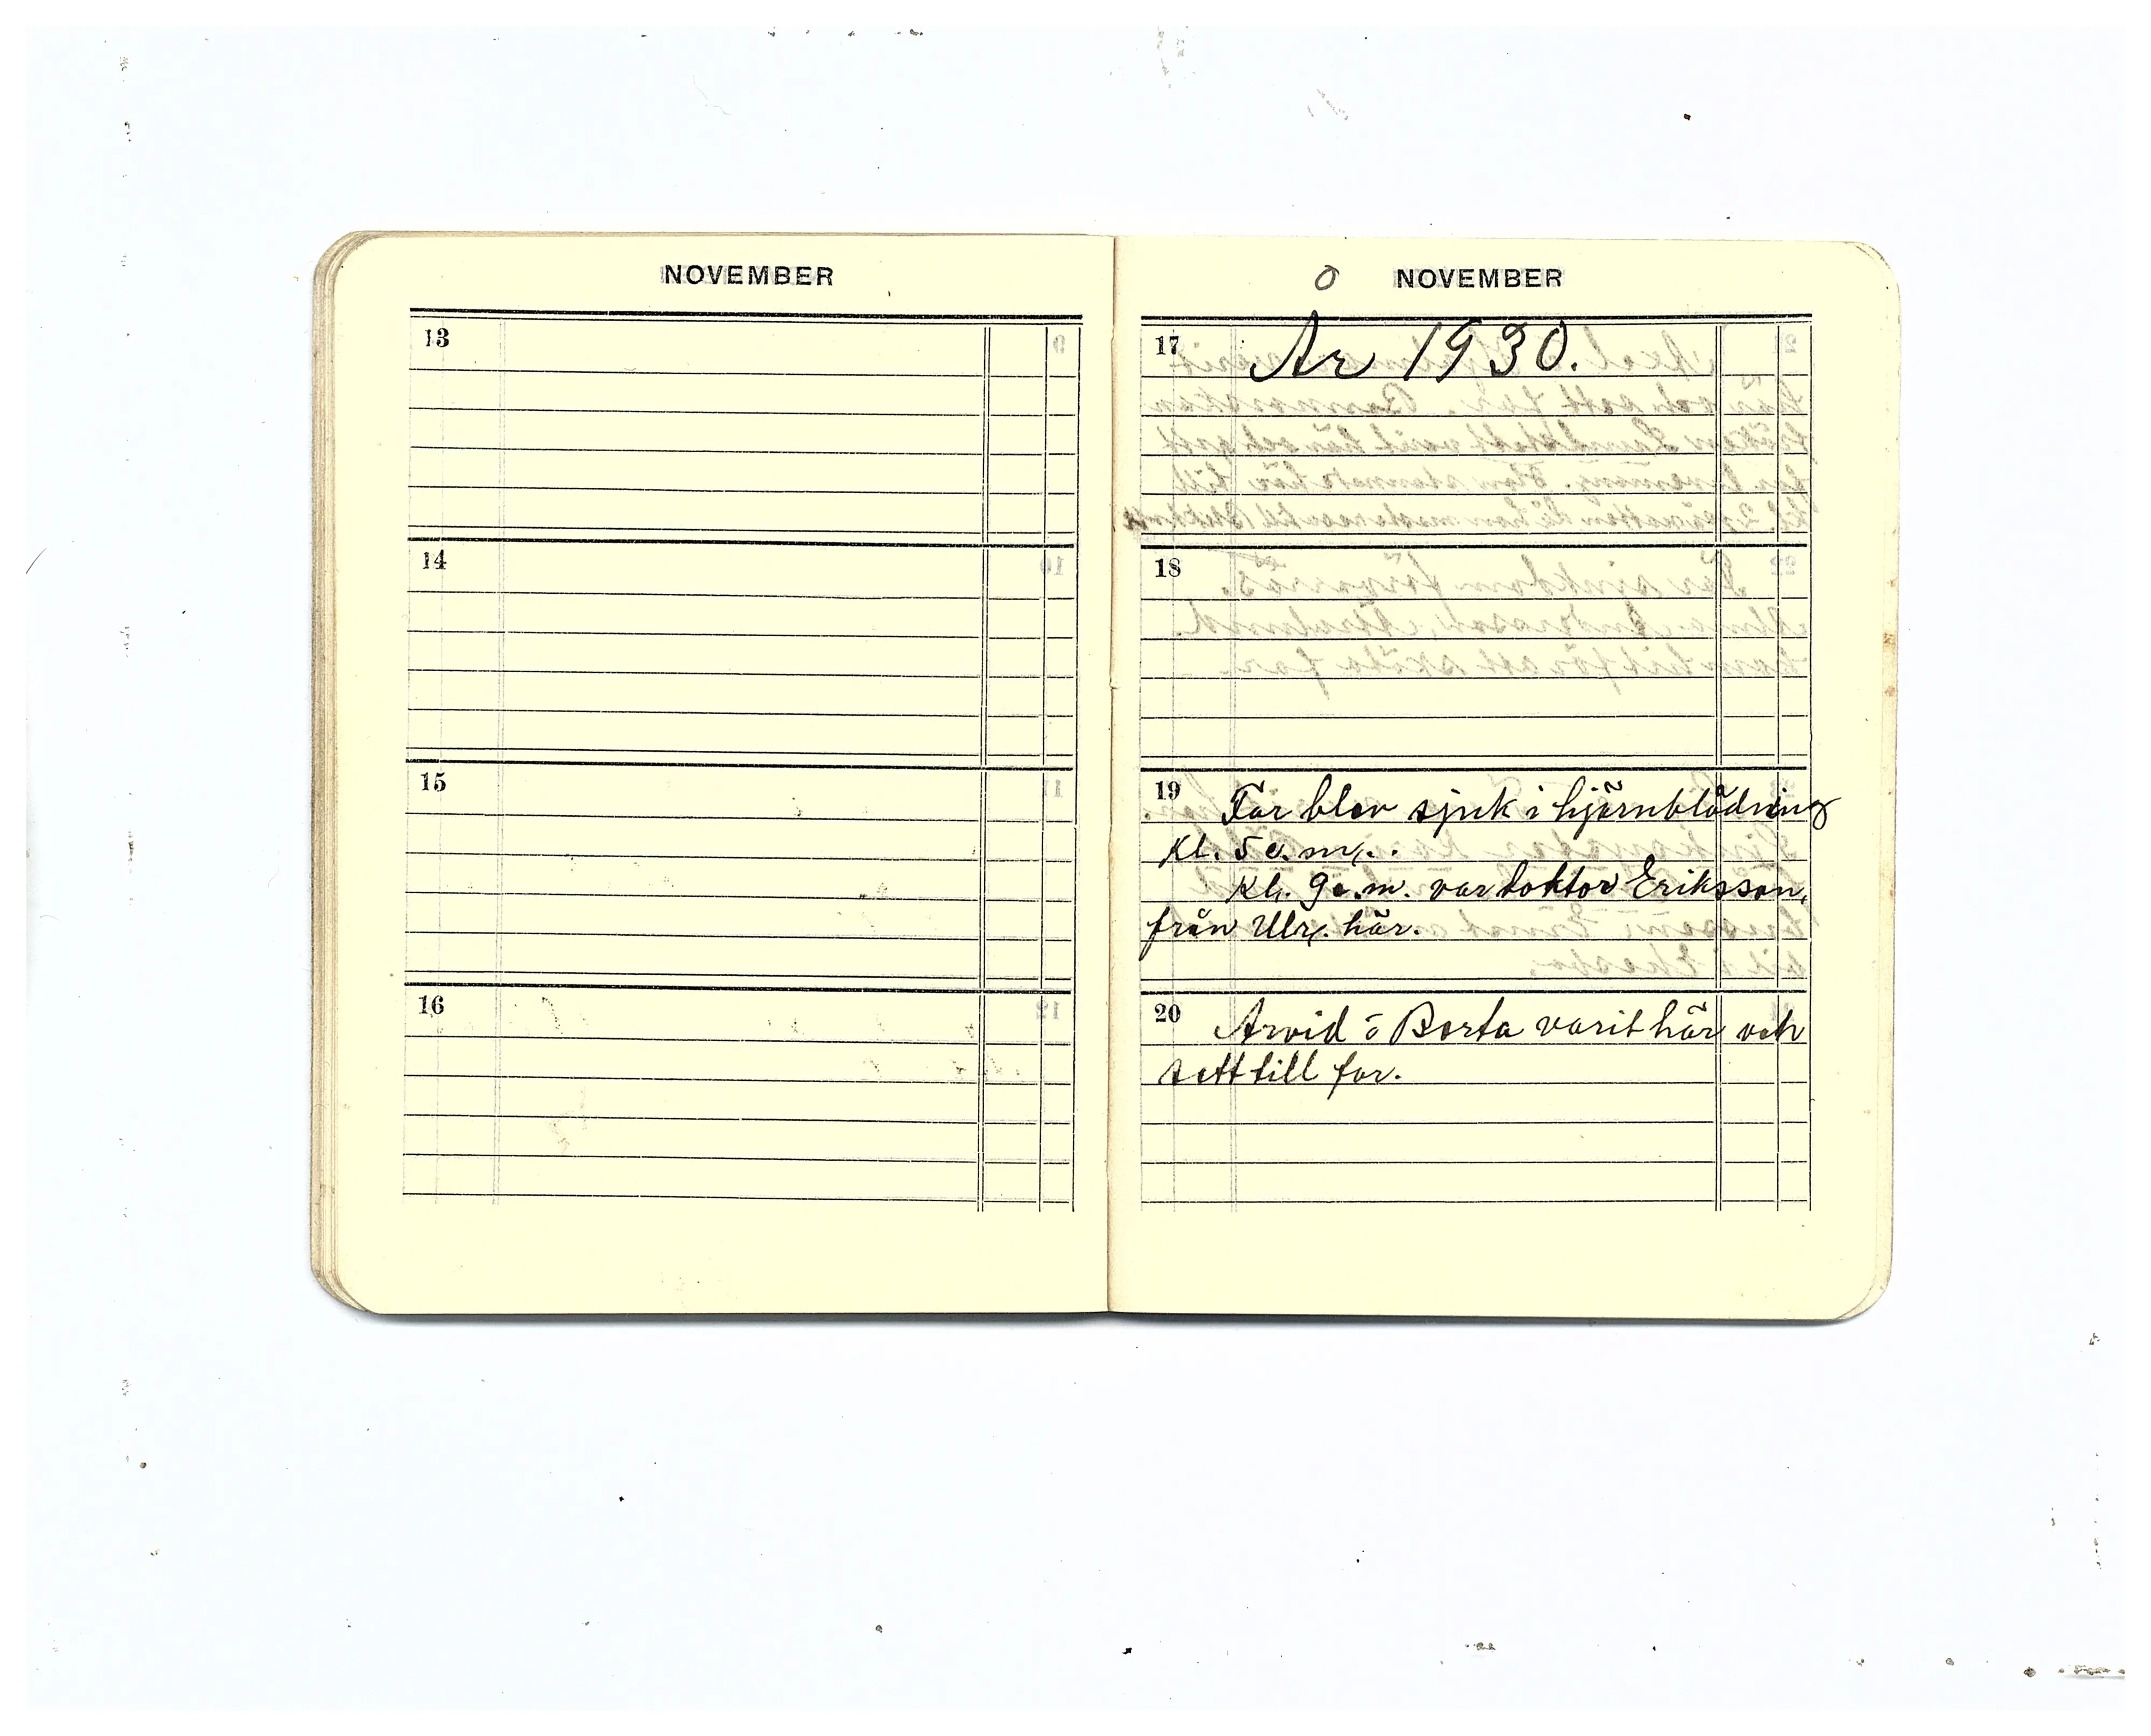 NOVEMBER
13
14
15
16
NOVEMBER
17 År 1930.
18
19 Far blev sjuk i hjärnblödning
kl. 5 e.m.
Kl. 9 e.m. var doktor Eriksson,
från Ulr. här.
20 Arvid o Berta varit här och
sett till far.